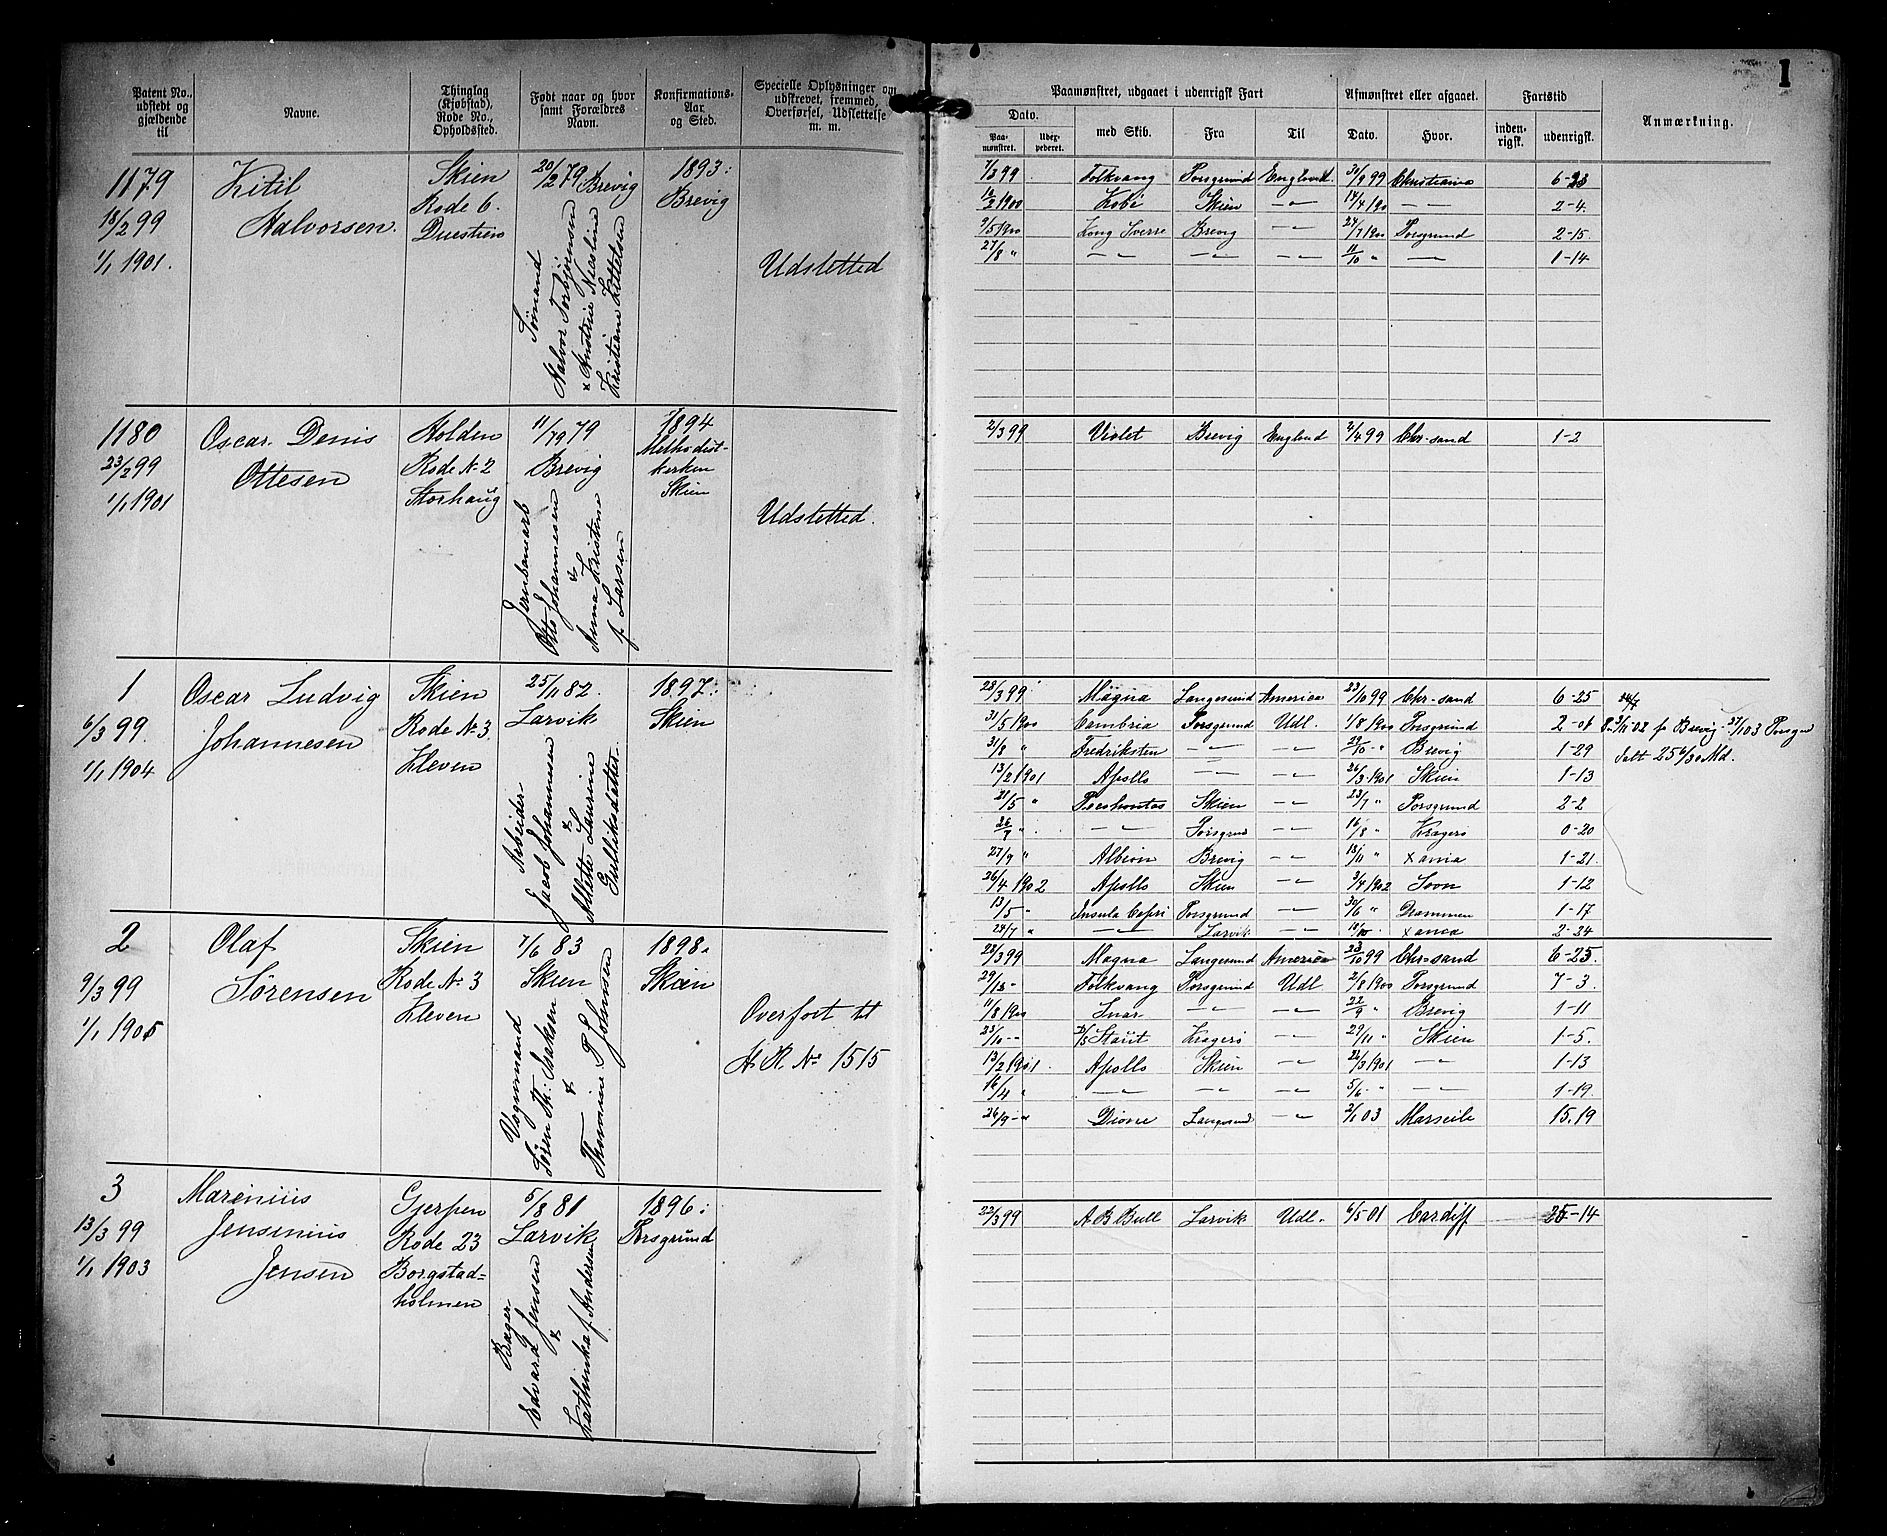 1
Patent No., udstedt og gjældende til
Navne.
Thinglag (Kjøbstad), Rode No., Opholdssted.
Født naar og hvor samt Forældres Navn.
Konfirmations-Aar og Sted.
Specielle Oplysninger om udskrevet, fremmed, Overførsel, Udslettelse m. m.
Paamønstret, udgaaet i udenrigsk Fart
Dato.
Paa-mønstret.
med Skib.
Fra
Til
Afmønstret eller afgaaet.
Dato.
Hvor.
Fartstid
inden-rigsk.
udenrigsk.
Anmærkning.
1179
18/2 99
1/1 1901.
Kitil
Halvorsen.
Skien
Rode 6.
20/2 79 Brevig
Sømand
Halvor Torbjørnsen
Kristiane Kittelsen
1893.
Brevig
Udsletted
7/3 99 Folkvang Porsgrund England. 31/9 99 Christiania
12/2 1900 Kobi Skien —"— 14/4 190 —"— 2-4.
9/5 1900 Kong Sverre Brevig —"— 24/7 1900 Porsgrund 2-15.
27/8 " —"— —"— —"— 11/10 " —"— 1-14
1180
23/2 99
1/1 1901
Oscar Denis
Ottesen
Holden
Rode No 2
Storhaug
11/79 79
Brevig
Jernbanearb
Otto Johannesen
&
Anna Kristine
f. Larsen
1894
Methodist-
kerken
Skien
Udslettet.
2/3 99 Violet Brevig England 2/4 99 Chr-sand 1-2
1
6/3 99.
1/1 1904
Oscar Ludvig
Johannesen
Skien
Rode No 3.
Kleven
25/11 82.
Larvik
Arbeider
Jacob Johannesen
&
Mette Laurine
Gulliksdatter.
1897.
Skien
28/3 99 Magna Langesund America 23/10 99 Chr-sand 6-25
31/5 1900 Cambria Porsgrund Udl. 1/8 1900 Porsgrund
31/8 " Fredriksten —"— —"— 23/10 " Brevig 1-29
13/2 1901 Apollo —"— —"— 26/3 1901 Skien 1-13
21/5 " Pocahontas Skien —"— 23/7 " Porsgrund 2-2
26/7 " —"— Porsgrund —"— 16/8 " Kragerø 0-20
27/9 " Albion Brevig —"— 18/11 " Xania 1-21.
26/4 1902 Apollo Skien —"— 3/4 1902 1-12
13/5 " Insula Capri Porsgrund —"— 30/6 " Drammen 1-17
24/7 " —"— Larvik —"— 18/10 Xania 2-24
Brevig 27/1 03 Porsgr
Ialt 25 6/30 Md.
2
9/3 99
1/1 1905
Olaf
Sørensen
Skien
Rode No 3
Kleven
7/6 83
Skien
Vognmand
Søren Th: Isaksen
&
Thomine P Johnsen
1898.
Skien
Overført til
H. R. No 1515
28/3 99 Magna Langesund America 23/10 99 Chr-sand 6-25.
29/12 - Folkvang Porsgrund Udl. 2/8 1900 Porsgrund 7-3.
11/8 1900 Snar —"— —"— 22/9 " Brevig 1-11
23/10 -- Kragerø —"— 29/11 " Skien 1-5.
13/2 1901 Apollo Skien —"— 26/3 1901 —"— 1-13
16/4 " —"— —"— —"— 5/6 " —"— 1-19.
26/9 -"- Dione Langesund —"— 2/1 03 Marseile 15.19
3
13/3 99
1/1 1903
Marenius
Jensenius
Jensen
Gjerpen
Rode 23
Borgestad-
holmen
5/8 81
Larvik
Bager
Edvard Jensen
&
Kathinka f. Andersen
1896.
Porsgrund
22/3 99 A B Bull Larvik Udl. 6/5 01 Cardiff 25-14